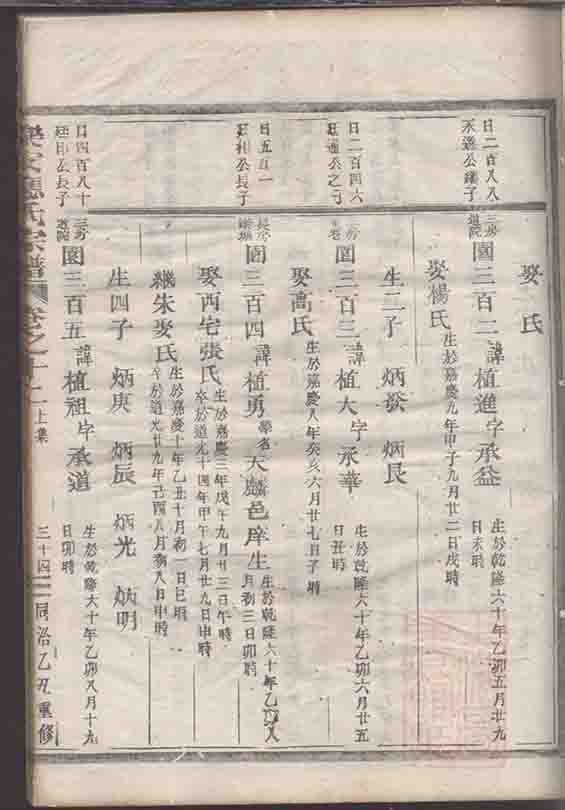 娶 氏
日二百八八
丞進公繼子
三房
道院
園三百二諱植進字承益 生於乾隆六十年乙卯五月廿九
日未時
娶楊氏 生於嘉慶九年甲子九月廿二日戌時
生二子 炳發 炳艮
日二百四六
丞通公之子
三房
園三百三諱植大字承華 生於乾隆六十年乙卯六月廿五
日丑時
娶高氏 生於嘉慶八年癸亥六月廿七日子時
日五百一
廷和公長子
長房
園三百四諱植勇 學名 天麟邑庠生 生於乾隆六十年乙卯八
月初三日卯時
娶西宅張氏 生於嘉慶三年戊午九月廿三日午時
卒於道光十四年甲午七月廿九日申時
繼朱麥氏 生於嘉慶十年乙丑十月初一日巳時
卒於道光廿九年己酉八月初八日申時
生四子 炳庚 炳辰 炳光 炳明
日四百八十
廷印公長子
三房
道院
園三百五諱植祖字承道 生於乾隆六十年乙卯八月十九
日卯時
氏宗譜 卷之十一上集 三十四 同治乙丑重修